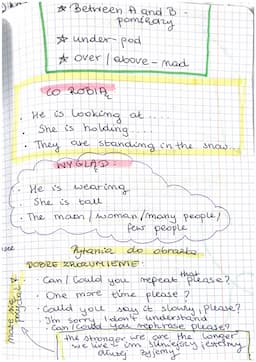 * Between A and B -
pomiędzy
* under - pod
* over / above - nad
CO ROBIĄ
• He is looking at ....
• She is holding ....
• They are standing in the snow...
WYGLĄD:
• He is wearing
• She is tall
• The man / woman / many people /
few people
Pytania do obrazka
DOBRE ZROZUMIENIE:
• Can / Could you repeat that please?
• One more time please?
• Could you say it slowly, please?
• I'm sorry I don't understand
• Can / Could you rephrase please?
the stronger we are the longer
we live - im silniejsi jesteśmy
dłużej żyjemy